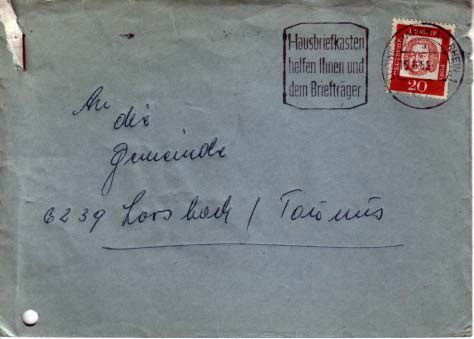 Hausbriefkasten
helfen Ihnen und
dem Briefträger
20
An
die
Gemeinde
6239 Lorsbach / Taunus